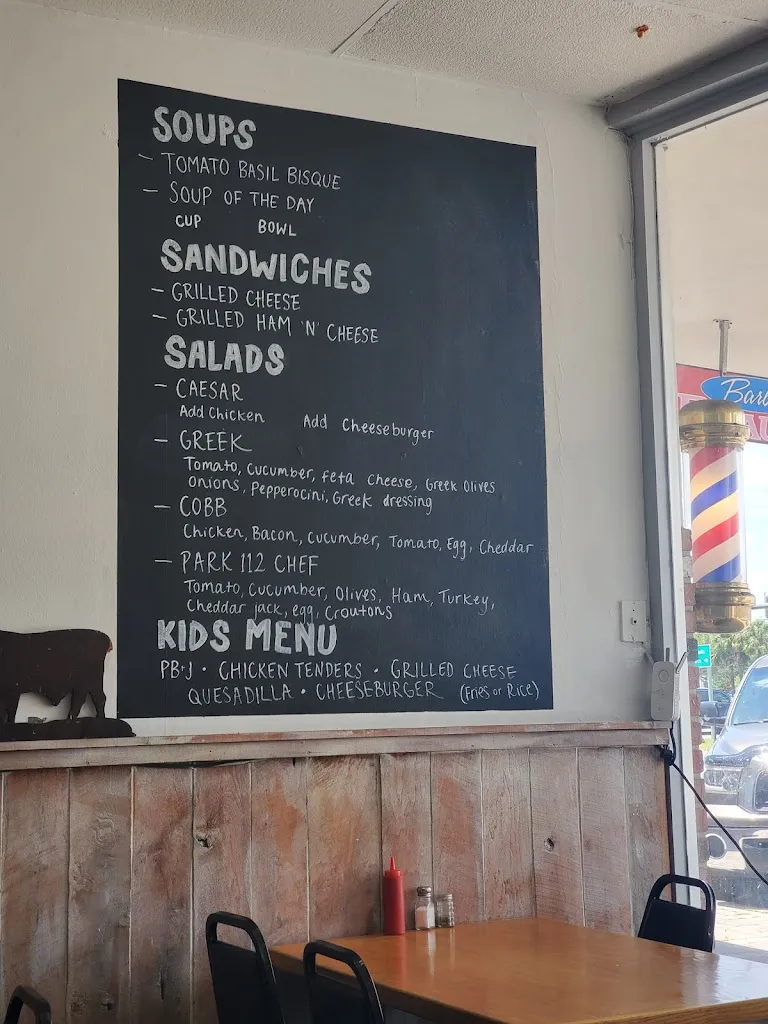 SOUPS
- TOMATO BASIL BISQUE
- SOUP OF THE DAY
CUP BOWL
SANDWICHES
- GRILLED CHEESE
- GRILLED HAM 'N' CHEESE
SALADS
- CAESAR
Add Chicken Add Cheeseburger
- GREEK
Tomato, Cucumber, Feta Cheese, Greek Olives
Onions, Pepperocini, Greek dressing
- COBB
Chicken, Bacon, Cucumber, Tomato, Egg, Cheddar
- PARK 112 CHEF
Tomato, Cucumber, Olives, Ham, Turkey,
Cheddar jack, egg, Croutons
KIDS MENU
PB+J • CHICKEN TENDERS • GRILLED CHEESE
QUESADILLA • CHEESEBURGER (Fries or Rice)